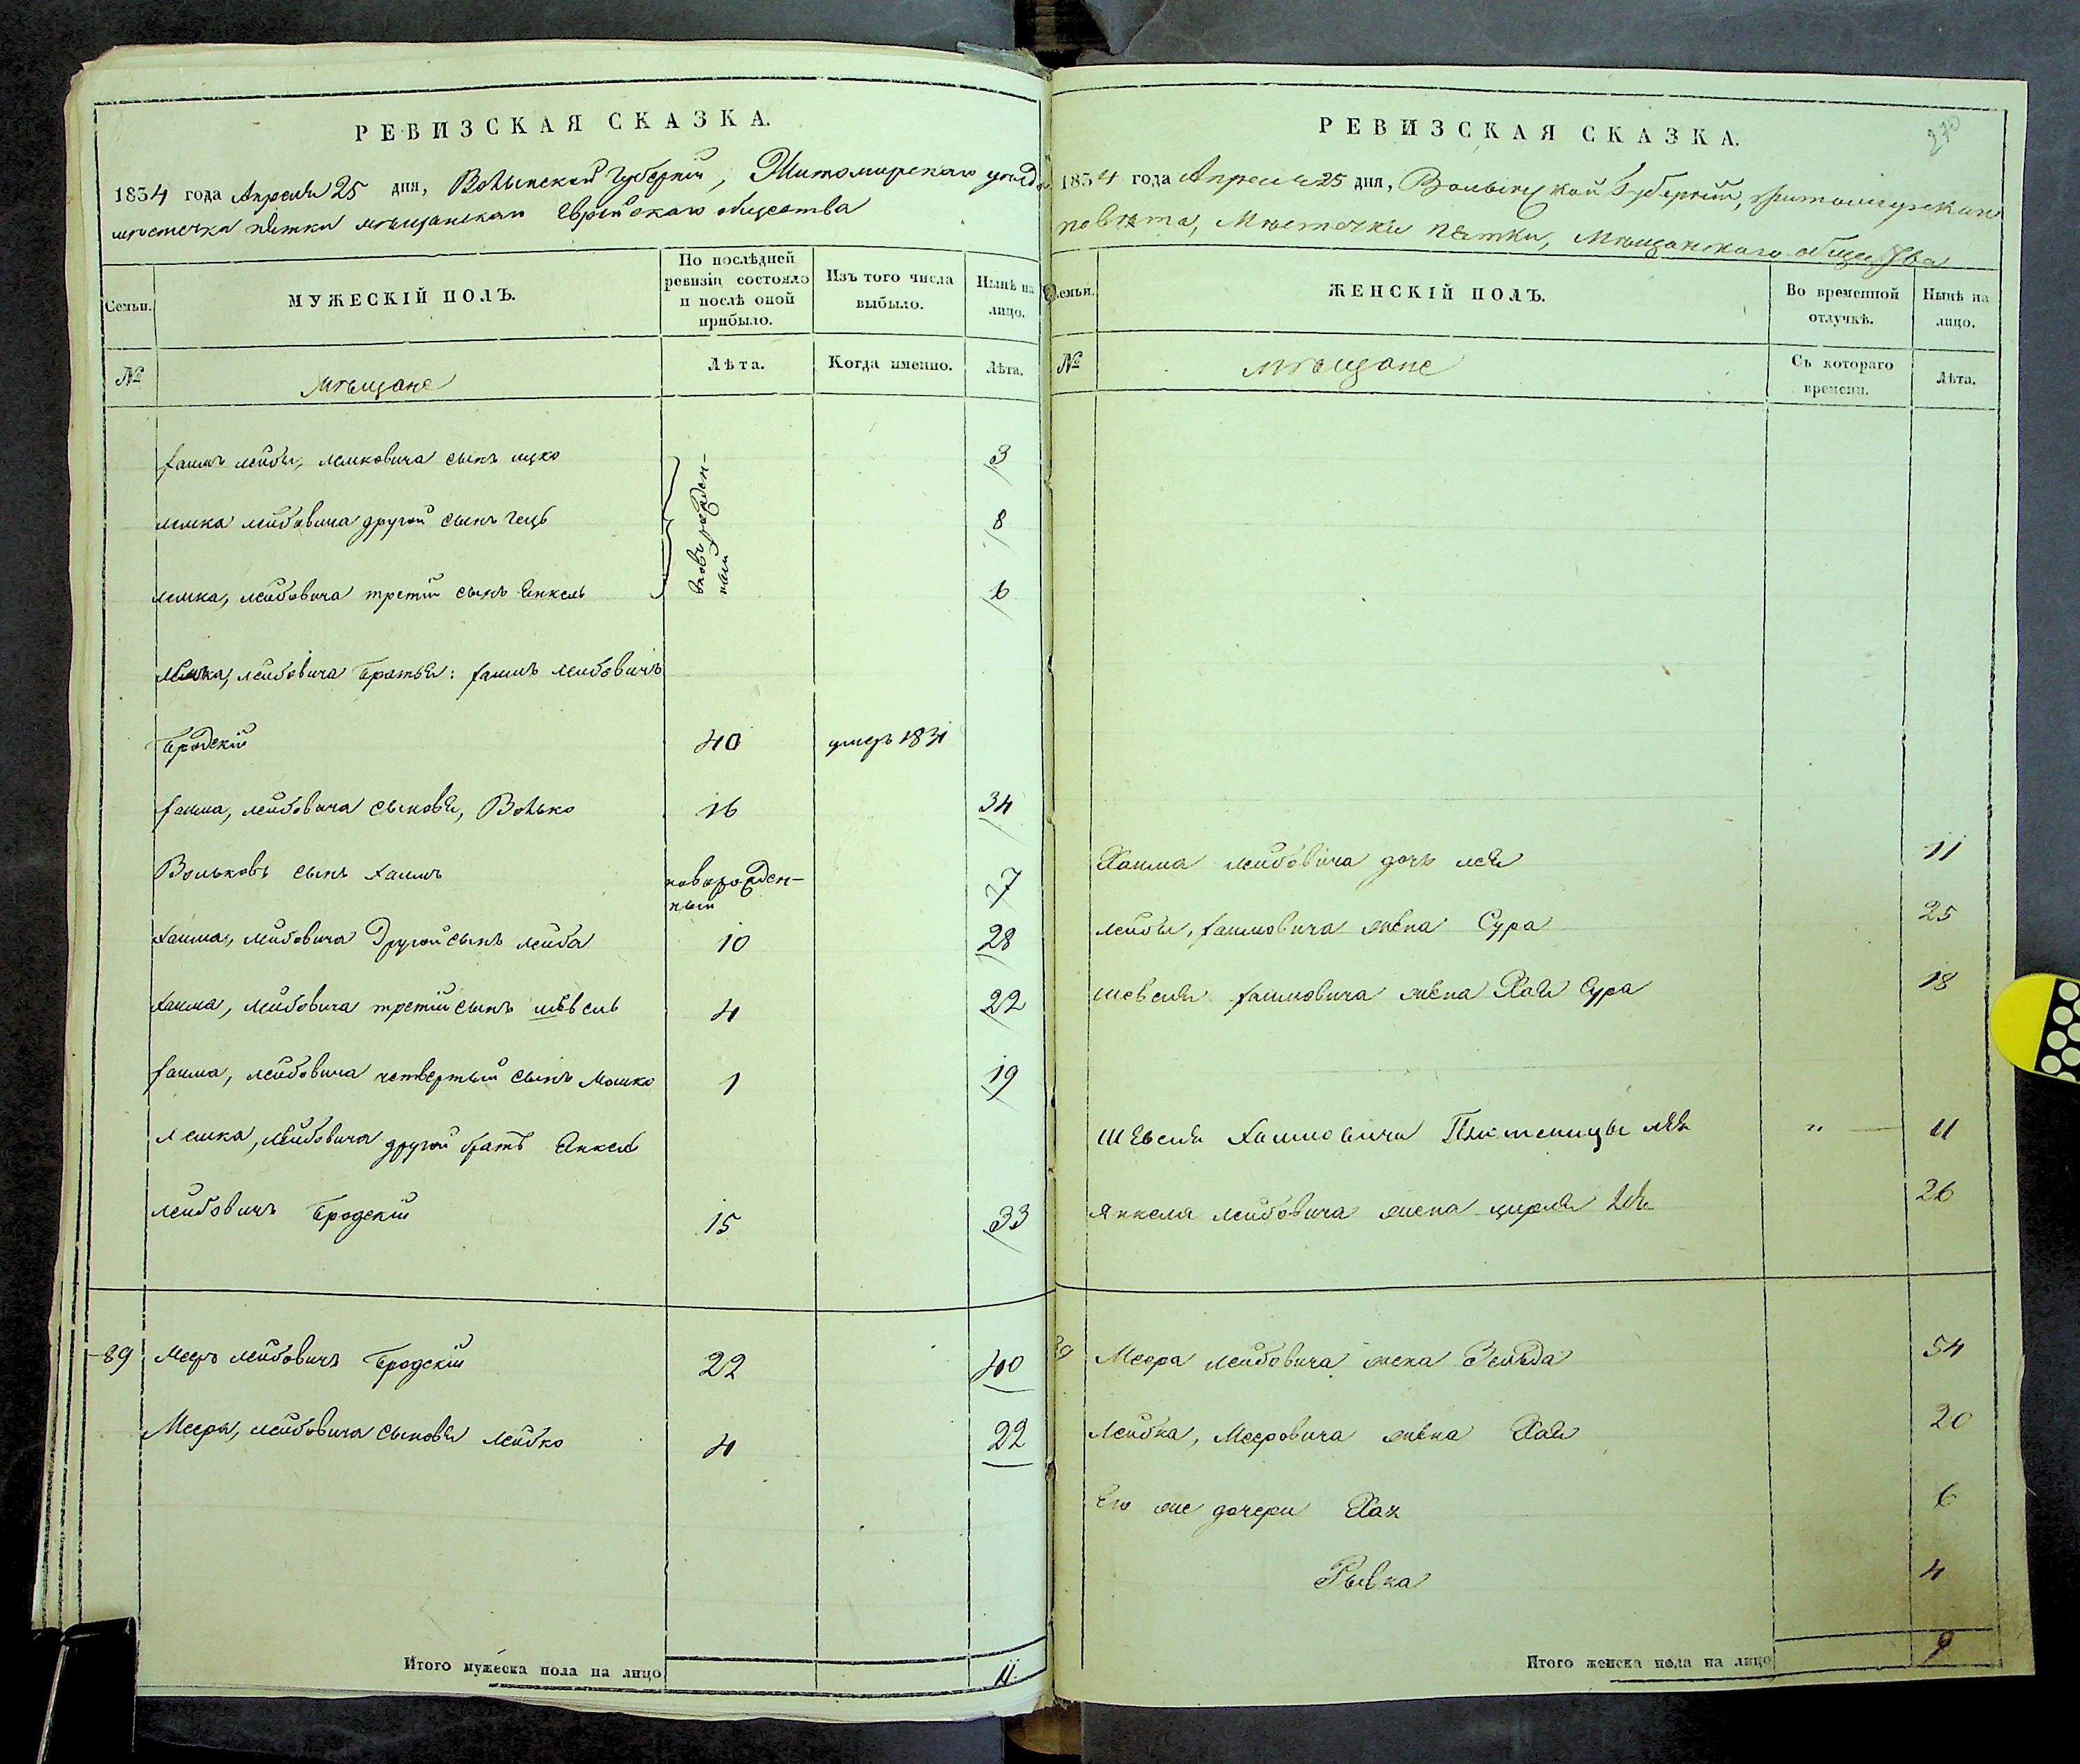 РЕВИЗСКАЯ СКАЗКА.
1834 года Апреля 25 дня, Волынской Губерніи, Житомирскаго уезда
местечка пятки мѣщанскаго Еврейскаго общества
Семьи.
МУЖЕСКІЙ ПОЛЪ.
По послѣдней ревизіи состояло и послѣ оной прибыло.
Изъ того числа выбыло.
Нынѣ на лицо.
№
мѣщане
Лѣта.
Когда именно.
Лѣта.
лейбы, лемковича сынъ ицко 3
лемка лейбовича другой сынъ 8
лемка, лейбовича третій сынъ Янкель 6
новорожденныи
лемка, лейбовича братья: хаимъ лейбовичъ
Бродскій 40 умеръ 1831
хаима, лейбовича сыновья, Волько 16 34
Вольковъ сынъ хаимъ новорожденныи 7
хаима, лейбовича Другой сынъ лейба 10 28
хаима, лейбовича третій сынъ шевель 4 22
хаима, лейбовича четвертый сынъ Мошко 1 19
лемка, лейбовича другой братъ Янкель
лейбовичъ Бродскій 15 33
89 Меэръ лейбовичъ Бродскій 22 40
Меера, лейбовича сыновья лейбко 4 22
Итого мужеска пола на лицо 11
РЕВИЗСКАЯ СКАЗКА.
270
1834 года Апреля 25 дня, Волынской Губерніи, Житомирскаго
повѣта, Мѣстечки пятки, Мѣщанскаго общества
Семьи.
ЖЕНСКІЙ ПОЛЪ.
Во временной отлучкѣ.
Нынѣ на лицо.
№
мѣщане
Съ котораго времени.
Лѣта.
Хаима лейбовича дочь лея 11
лейбы, хаимовича жена Сура 25
шевеля хаимовича жена Хая Сура 18
Шевеля Хаимовича лея " 11
Янкеля лейбовича жена цирля 26
89 Меэра лейбовича жена Зельда 54
Лейбка, Мееровича жена Хая 20
Его же дочери Хая 6
Рывка 4
Итого женска пола на лицо 9